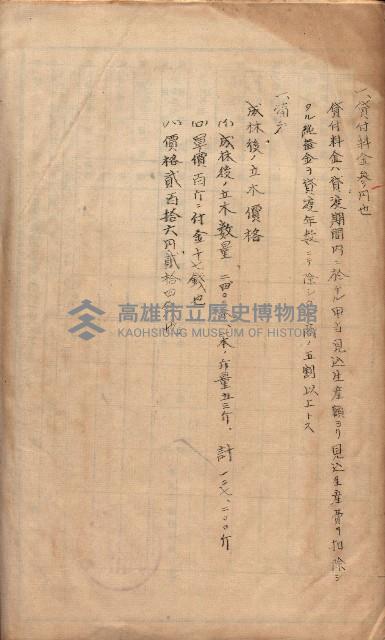 一、貸付料金参円也
貸付料金ハ貸渡期間内ニ於ケル甲当見込生産額ヨリ見込生産費ヲ扣除シ
タル純益金ヲ貸渡年数ニテ除シタル商ノ五割以上トス
一、備考
成林後ノ立木價格
(イ) 成林後ノ立木数量 二四〇 本 斤量五三斤 計 一二七、二〇〇斤
(ロ) 單價百斤ニ付金十七銭也
(ハ) 價格貳百拾六円貳拾四
高雄市立歷史博物館
KAOHSIUNG MUSEUM OF HISTORY